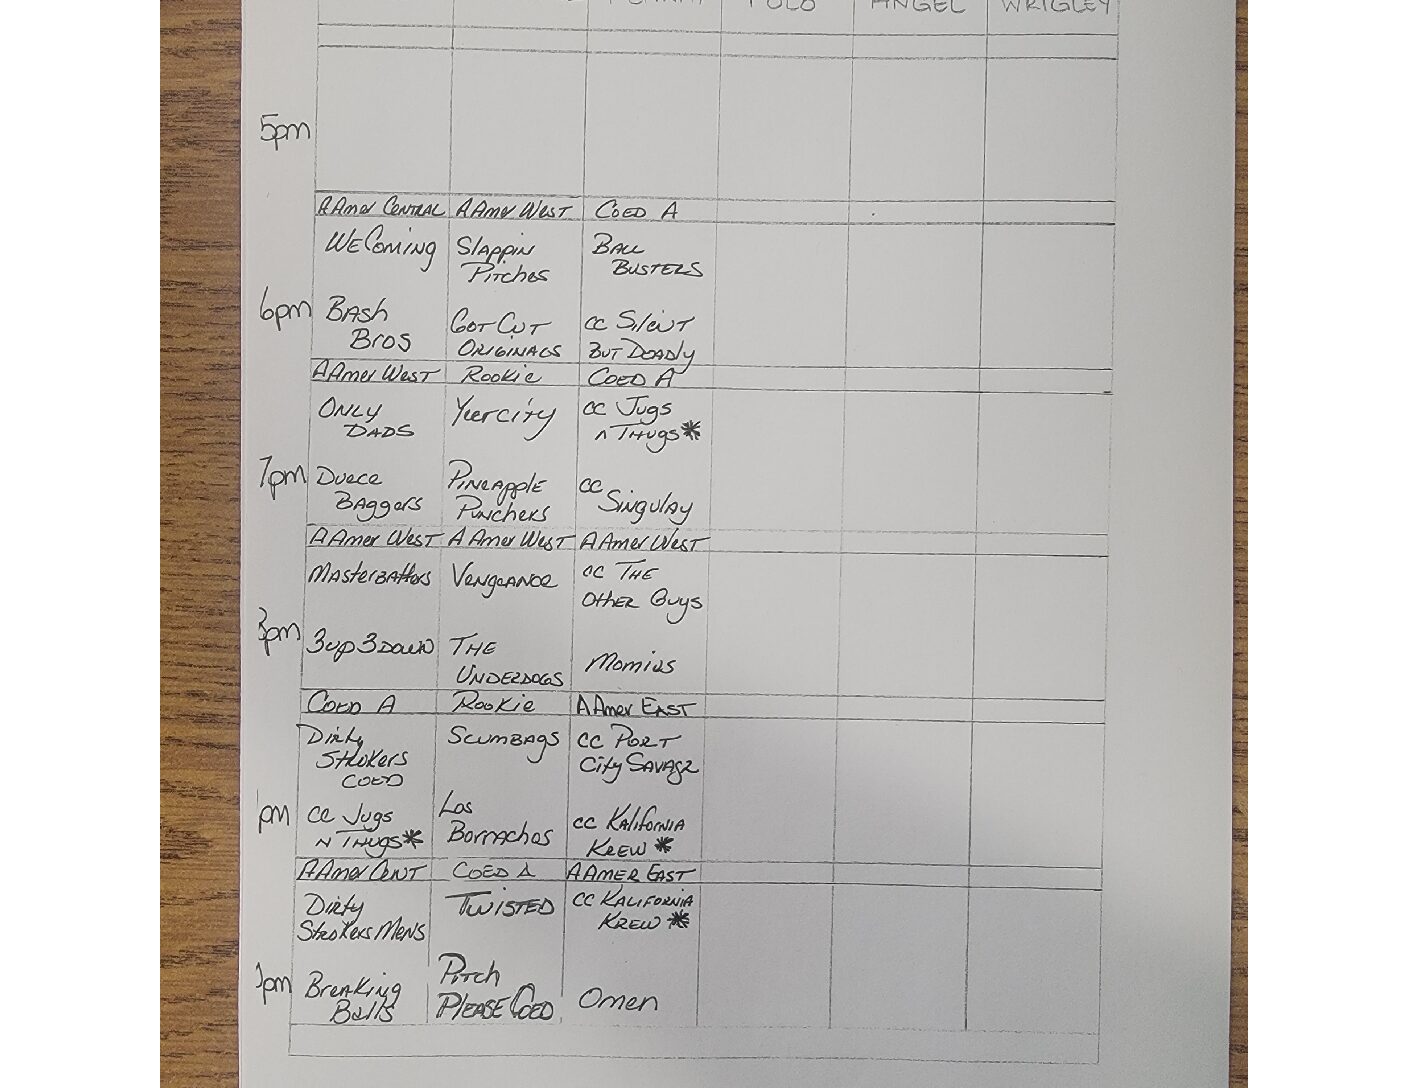 POLO ANGEL WRIGLEY
5pm
AAmer CENTRAL AAmer West COED A
We Coming Slappin Ball
Pitches BUSTERS
6pm Bash Got Cut cc Silent
Bros ORIGINALS BUT DEADLY
AAmer West Rookie COED A
ONLY Yeercity cc Jugs
DADS n THUgs*
7pm Duece Pineapple cc
Baggers Punchers Singulay
AAmer West AAmer West AAmer West
Masterbatters VENGEANCE cc THE
Other Guys
3up3Down THE Momias
UNDERDOGS
COED A Rookie AAmer EAST
Dirty SCUMBAGS cc PORT
Strokers City SAVAGE
COED
pm cc Jugs Los cc KALIFORNIA
n THUgs* Borrachos KREW *
AAmer CENT COED A AAMER EAST
Dirty TWISTED cc KALIFORNIA
Strokers Mens KREW *
pm Breaking Pitch Omen
Balls PLEASE COED